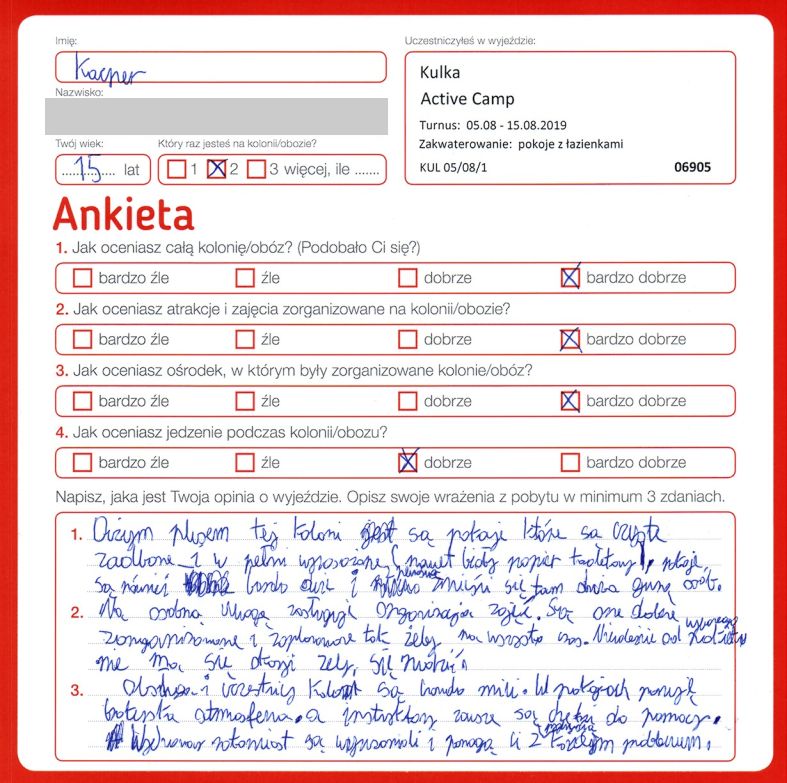 Imię:
Kacper
Nazwisko:
Twój wiek:
15 lat
Który raz jesteś na kolonii/obozie?
1 2 3 więcej, ile .......
Uczestniczyłeś w wyjeździe:
Kulka
Active Camp
Turnus: 05.08 - 15.08.2019
Zakwaterowanie: pokoje z łazienkami
KUL 05/08/1 06905
Ankieta
1. Jak oceniasz całą kolonię/obóz? (Podobało Ci się?)
bardzo źle źle dobrze bardzo dobrze
2. Jak oceniasz atrakcje i zajęcia zorganizowane na kolonii/obozie?
bardzo źle źle dobrze bardzo dobrze
3. Jak oceniasz ośrodek, w którym były zorganizowane kolonie/obóz?
bardzo źle źle dobrze bardzo dobrze
4. Jak oceniasz jedzenie podczas kolonii/obozu?
bardzo źle źle dobrze bardzo dobrze
Napisz, jaka jest Twoja opinia o wyjeździe. Opisz swoje wrażenia z pobytu w minimum 3 zdaniach.
1. Dużym plusem tej koloni są pokoje które są czyste
zadbane i w pełni wyposażone (nawet biały papier toaletowy), pokoje
są również bardzo duże i zmieści się tam duża grupa osób.
2. Na osobną uwagę zasługuje organizacja zajęć. Są one dobrze
zorganizowane i zaplanowane tak żeby na wszystko czas. Niezależnie od
nie ma się okazji żeby się nudzić
3. Obsługa i uczestnicy są bardzo mili. W pokojach panuje
atmosfera, a instruktorzy zawsze są chętni do pomocy.
Wychowawcy natomiast są wyrozumiali i pomogą ci z problemem.